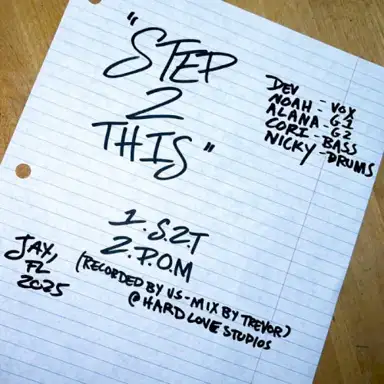 "STEP
2
THIS"
DEV
NOAH - VOX
ALANA - G1
CORI - G2
NICKY - BASS
- DRUMS
1. S.2.T
2. P.O.M
(RECORDED BY US - MIX BY TREVOR)
@ HARD LOVE STUDIOS
JAX,
FL
2025